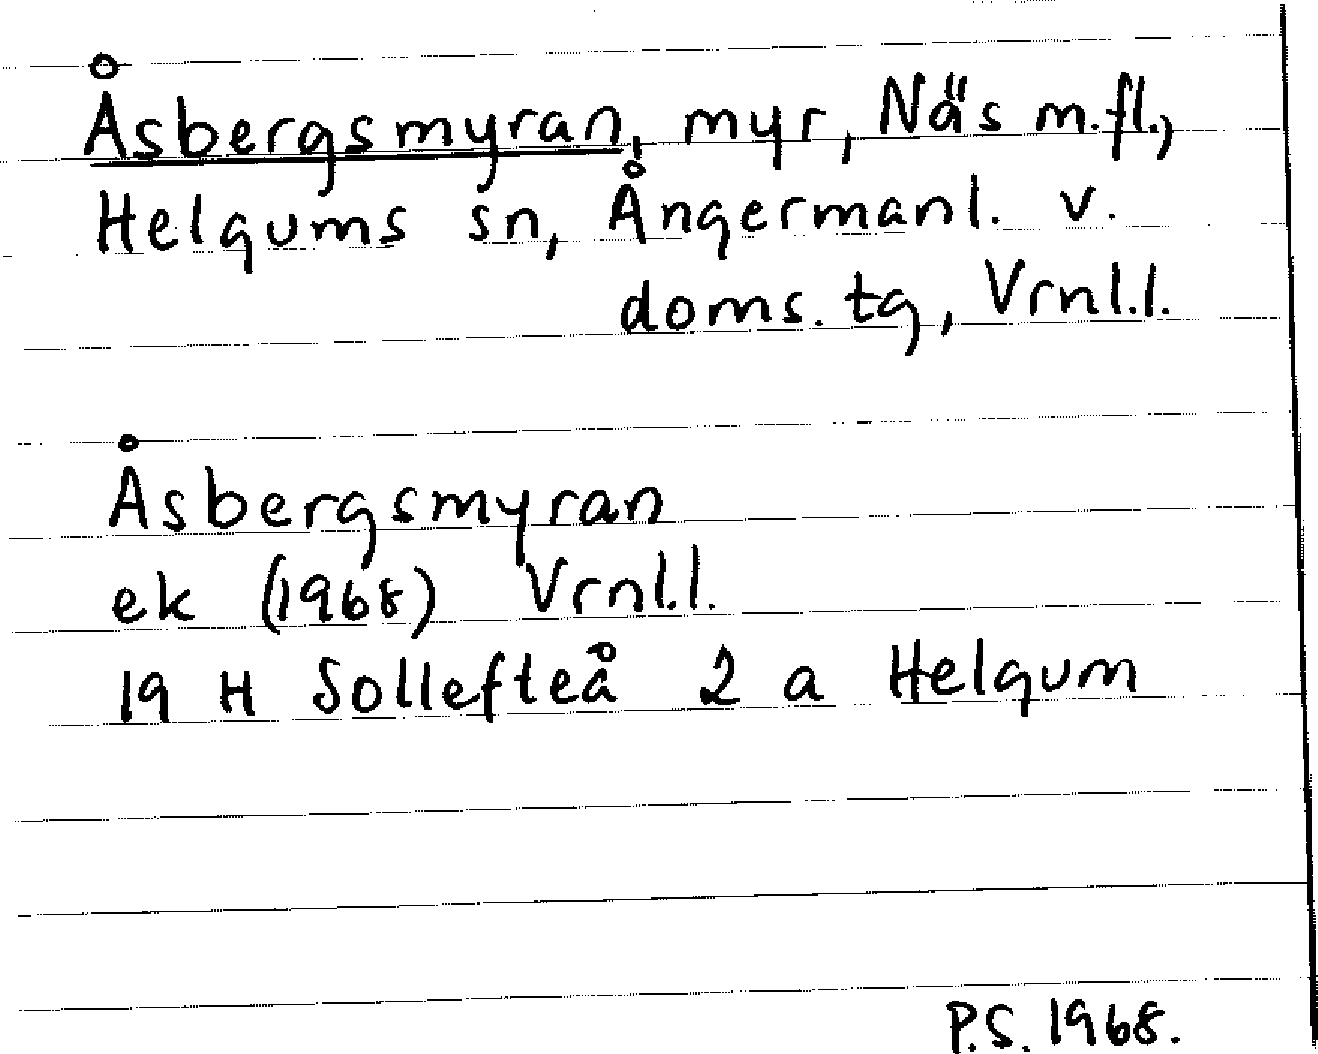 Åsbergsmyran, myr, Näs m.fl.,
Helgums sn, Ångermanl. v.
doms. tg, Vrnl.l.
Åsbergsmyran
ek (1968) Vrnl.l.
19 H Sollefteå 2 a Helgum
P.S. 1968.